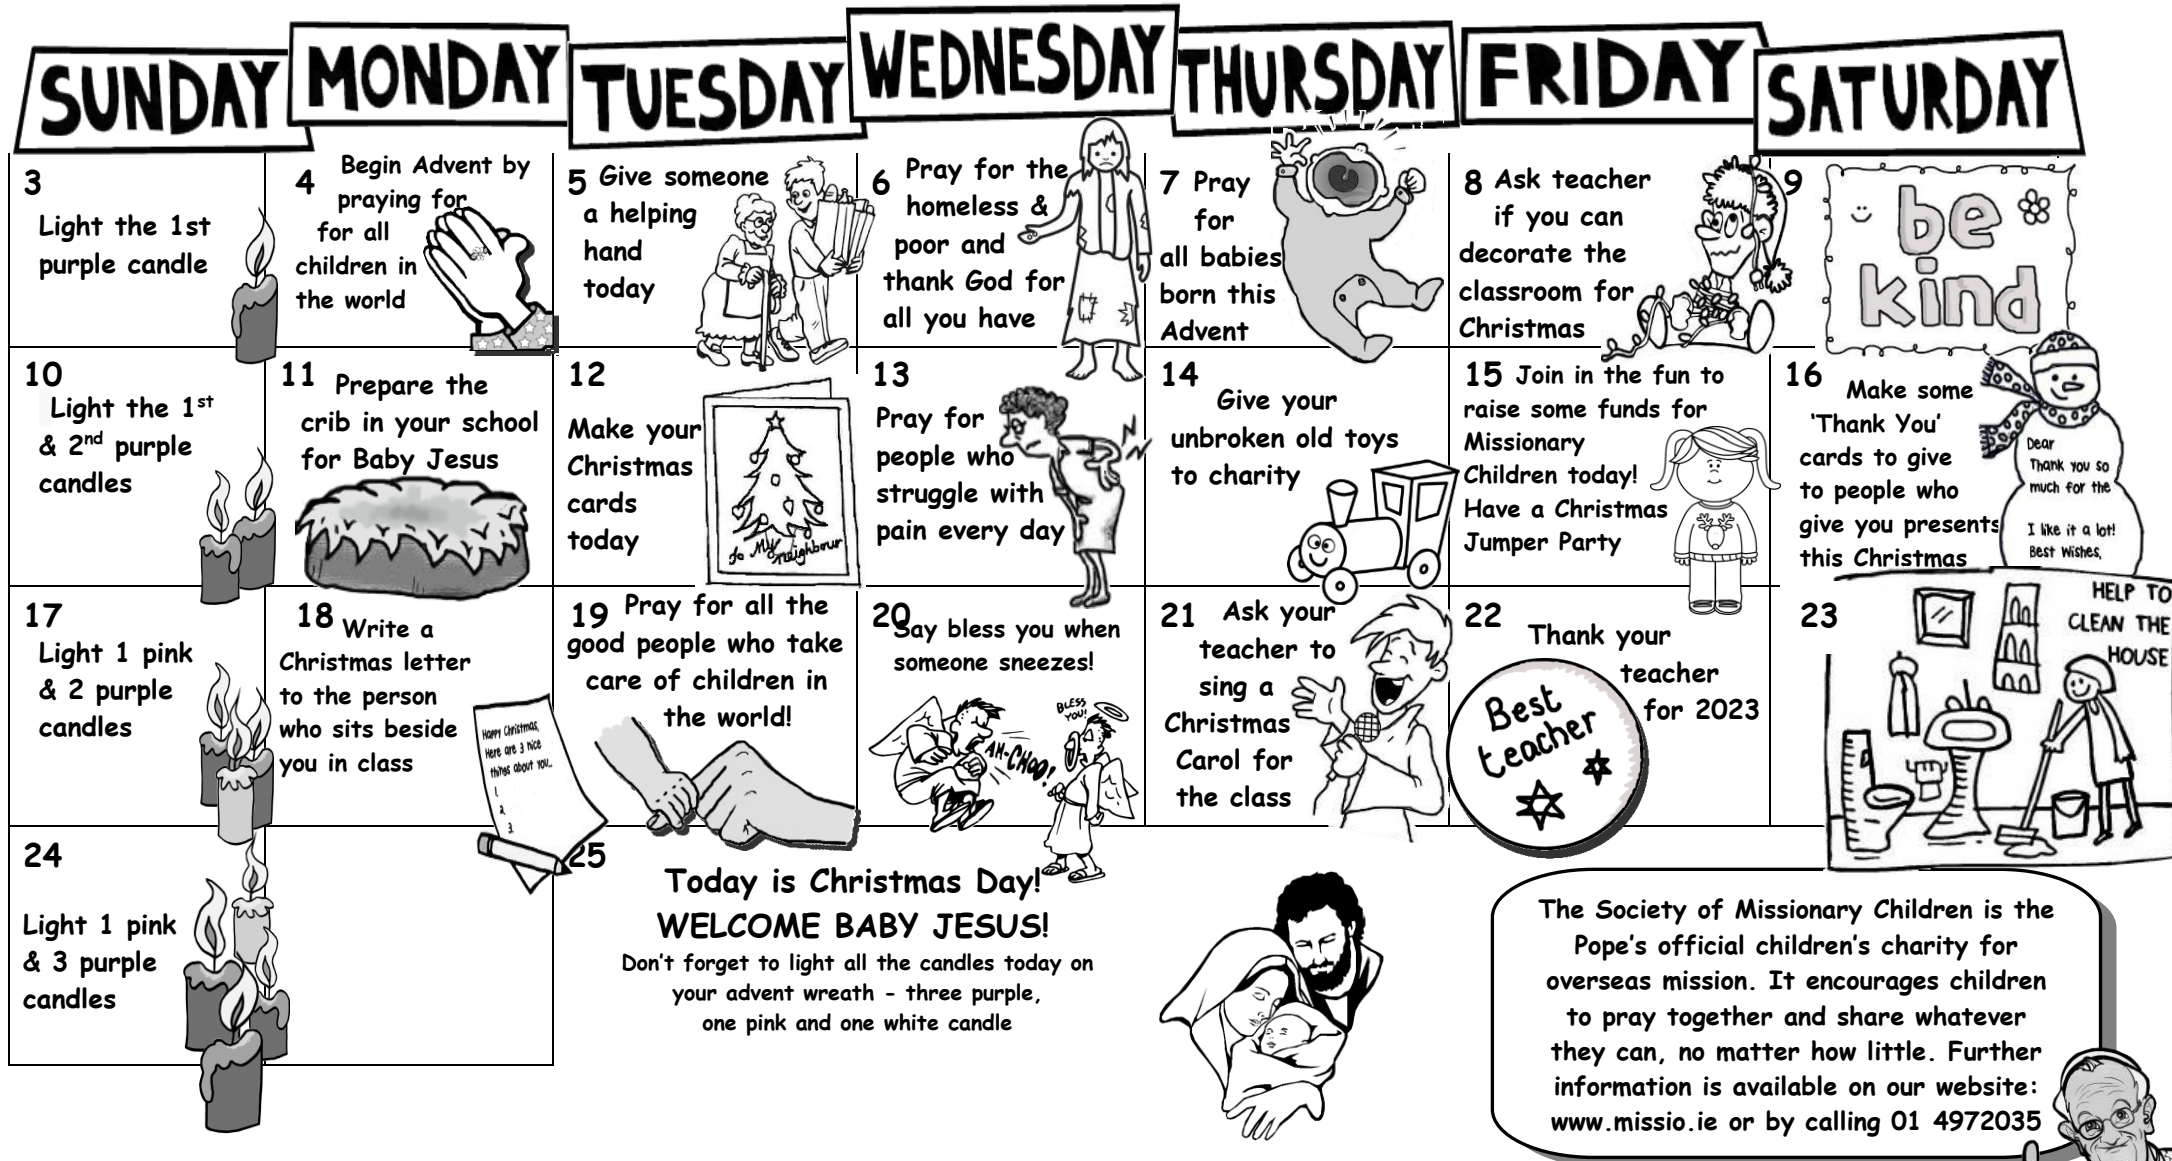 SUNDAY
MONDAY
TUESDAY
WEDNESDAY
THURSDAY
FRIDAY
SATURDAY
3
Light the 1st
purple candle
4
Begin Advent by
praying for
for all
children in
the world
5 Give someone
a helping
hand
today
6 Pray for the
homeless &
poor and
thank God for
all you have
7 Pray
for
all babies
born this
Advent
8 Ask teacher
if you can
decorate the
classroom for
Christmas
9
be
kind
10
Light the 1st
& 2nd purple
candles
11 Prepare the
crib in your school
for Baby Jesus
12
Make your
Christmas
cards
today
To My neighbour
13
Pray for
people who
struggle with
pain every day
14
Give your
unbroken old toys
to charity
15 Join in the fun to
raise some funds for
Missionary
Children today!
Have a Christmas
Jumper Party
16 Make some
‘Thank You’
cards to give
to people who
give you presents
this Christmas
Dear
Thank you so
much for the
I like it a lot!
Best Wishes,
17
Light 1 pink
& 2 purple
candles
18 Write a
Christmas letter
to the person
who sits beside
you in class
Happy Christmas,
Here are 3 nice
things about you...
1.
2.
3.
19 Pray for all the
good people who take
care of children in
the world!
20
Say bless you when
someone sneezes!
AH-CHOO!
BLESS
YOU!
21 Ask your
teacher to
sing a
Christmas
Carol for
the class
22 Thank your
teacher
for 2023
Best
teacher
23
HELP TO
CLEAN THE
HOUSE
24
Light 1 pink
& 3 purple
candles
25
Today is Christmas Day!
WELCOME BABY JESUS!
Don’t forget to light all the candles today on
your advent wreath - three purple,
one pink and one white candle
The Society of Missionary Children is the
Pope’s official children’s charity for
overseas mission. It encourages children
to pray together and share whatever
they can, no matter how little. Further
information is available on our website:
www.missio.ie or by calling 01 4972035